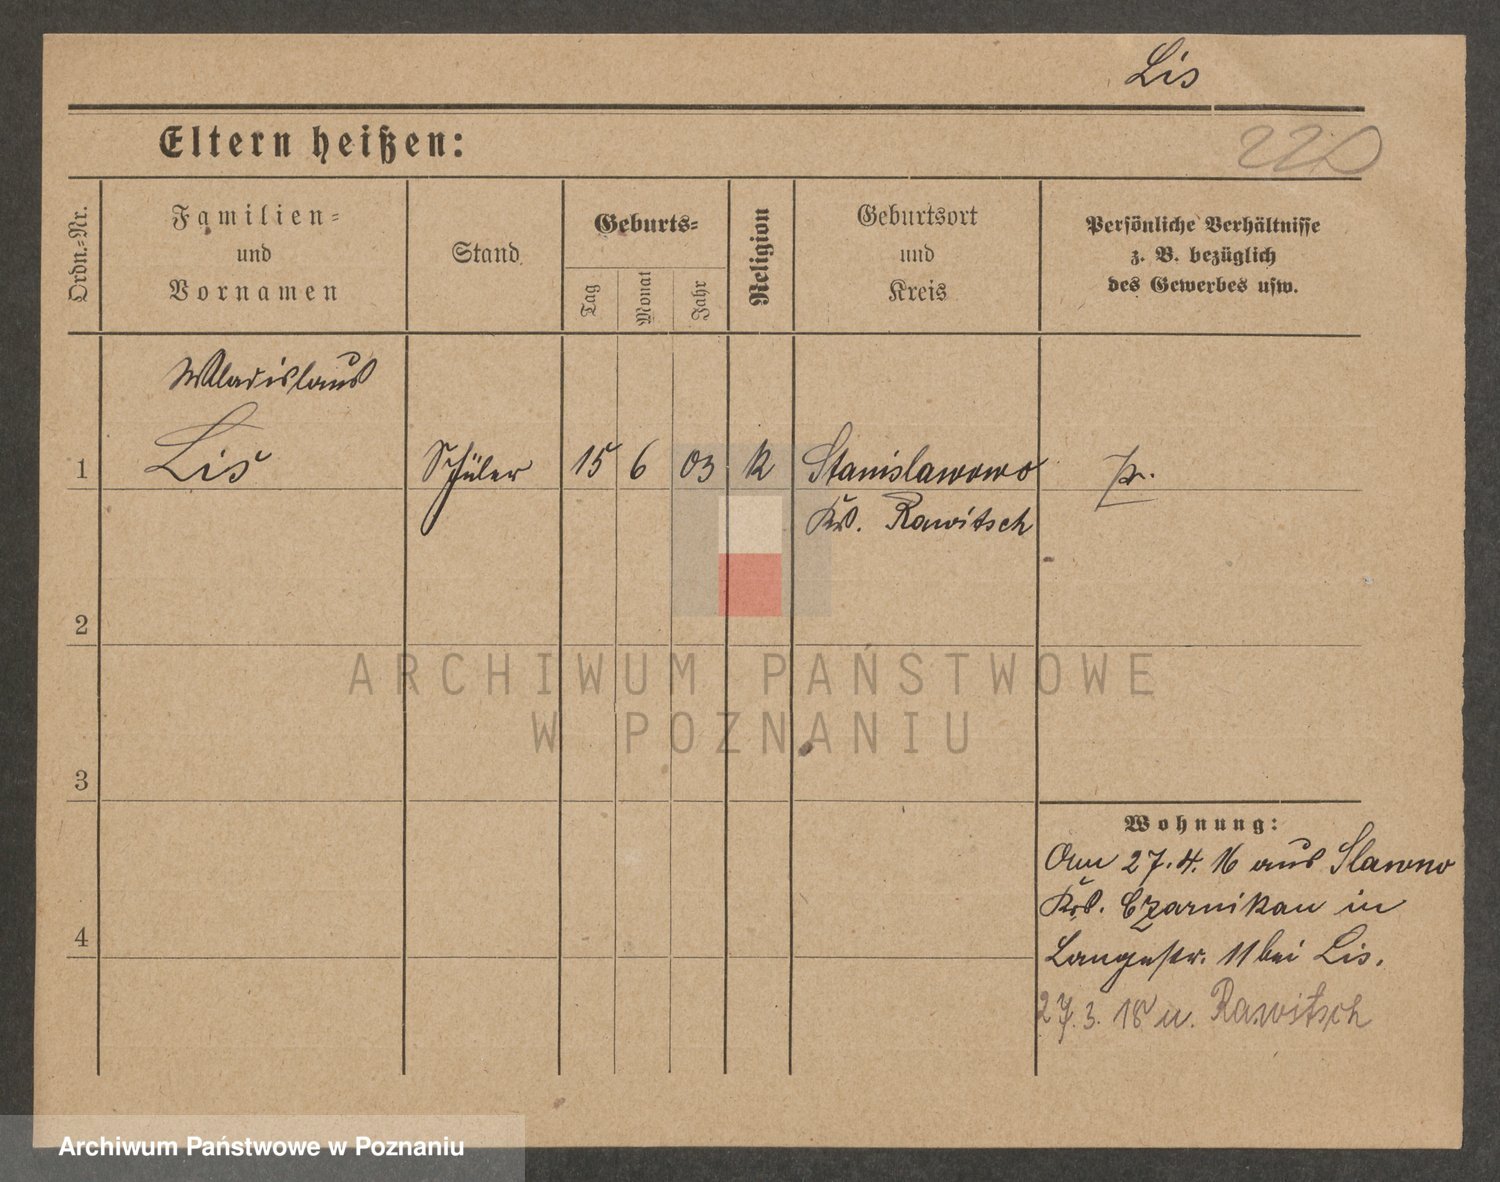 Lis
Eltern heißen:
Ordn.-Nr.
Familien-
und
Vornamen
Stand
Geburts-
Tag
Monat
Jahr
Religion
Geburtsort
und
Kreis
Persönliche Verhältnisse
z. B. bezüglich
des Gewerbes usw.
Wladislaus
1 Lis Schüler 15 6 03 k Stanislawowo
Krs. Rawitsch
2
ARCHIWUM PAŃSTWOWE
W POZNANIU
3
Wohnung:
Am 27.4.16 aus Slawno
Krs. Czarnikau in
4
Langestr. 11 bei Lis.
27.3.18 n. Rawitsch
Archiwum Państwowe w Poznaniu